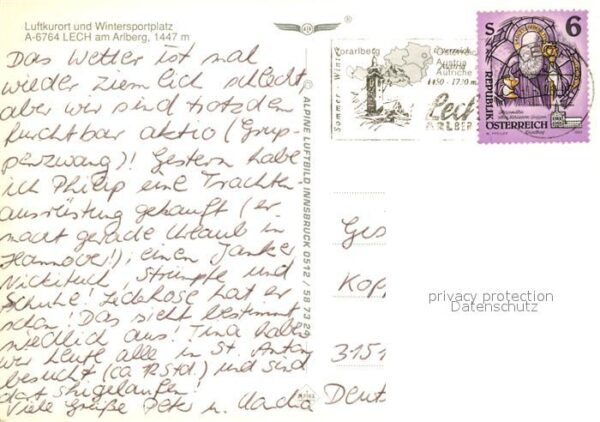 Luftkurort und Wintersportplatz
A-6764 LECH am Arlberg, 1447 m
Das Wetter ist mal
wieder ziemlich schlecht,
aber wir sind trotzdem
furchtbar aktiv (Grup-
penzwang)! Gestern habe
ich Philip eine Trachten-
ausrüstung gekauft (er
macht gerade Urlaub in
Hannover!); einen Janker,
Nickituch, Strümpfe und
Schuhe! Lederhose hat er
schon! Das sieht bestimmt
niedlich aus! Tina haben
wir heute alle in St. Anton
besucht (ca 12 Std.) und sind
dort skigelaufen!
Viele Grüße Peter u.
© ALPINE LUFTBILD INNSBRUCK 0512 / 58 73 2
Sommer - Winter
Vorarlberg
Österreich
Austria
Autriche
1450 - 1720 m
Lech
ARLBERG
S 6
REPUBLIK
ÖSTERREICH
Ges
Kop
privacy protection
Datenschutz
315
Deut